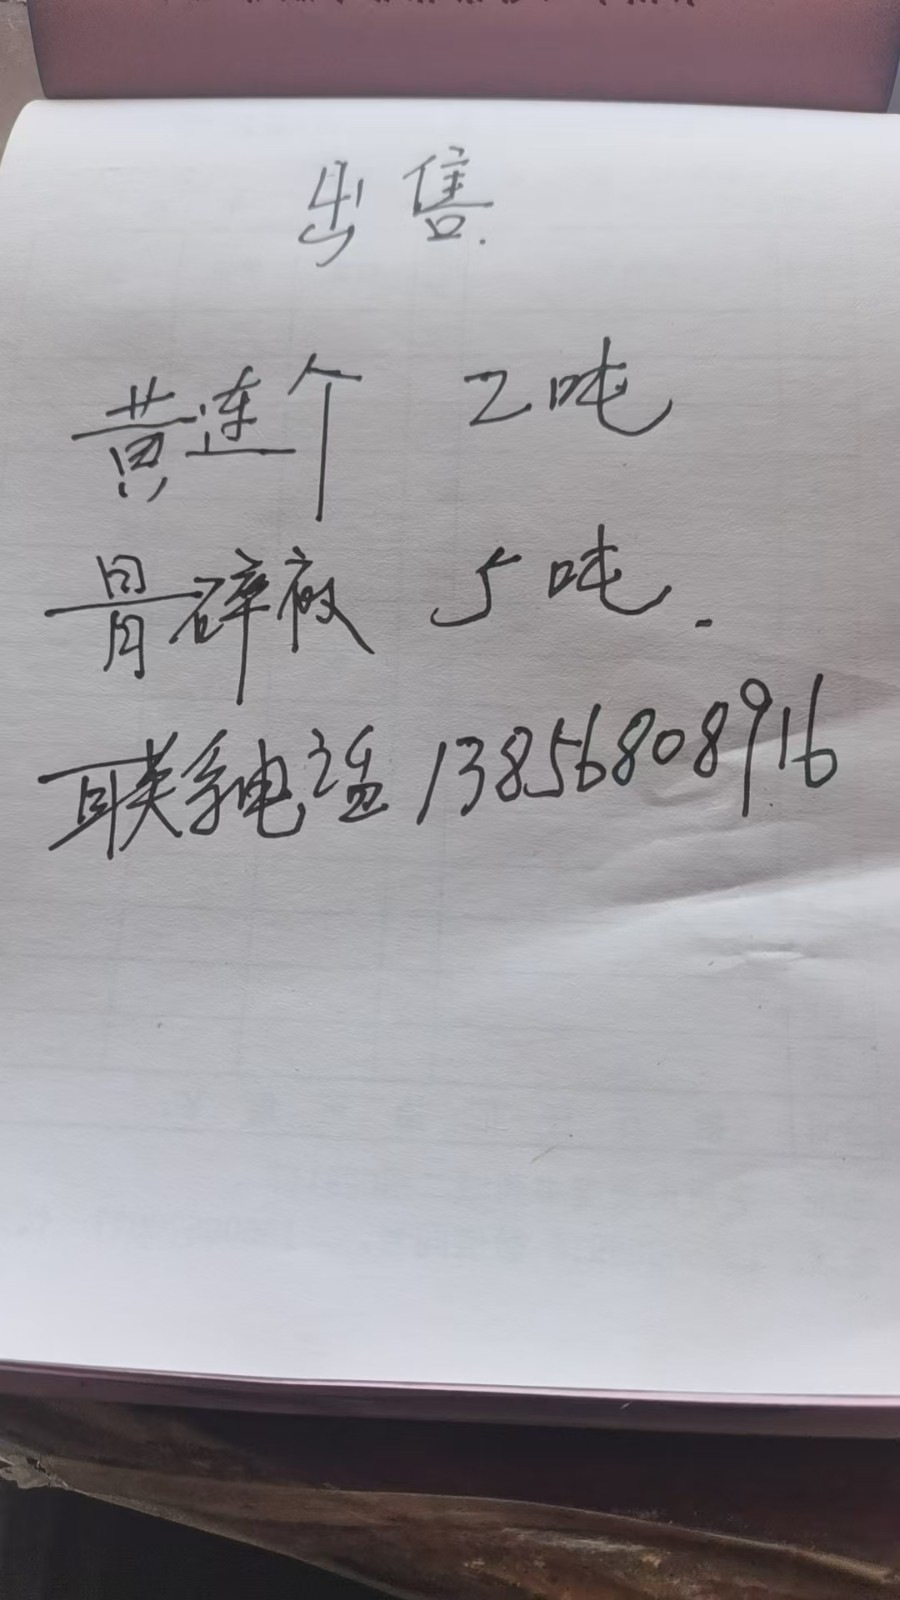 出售.
黄连个 2吨
骨碎 5吨.
联系电话 13856808916